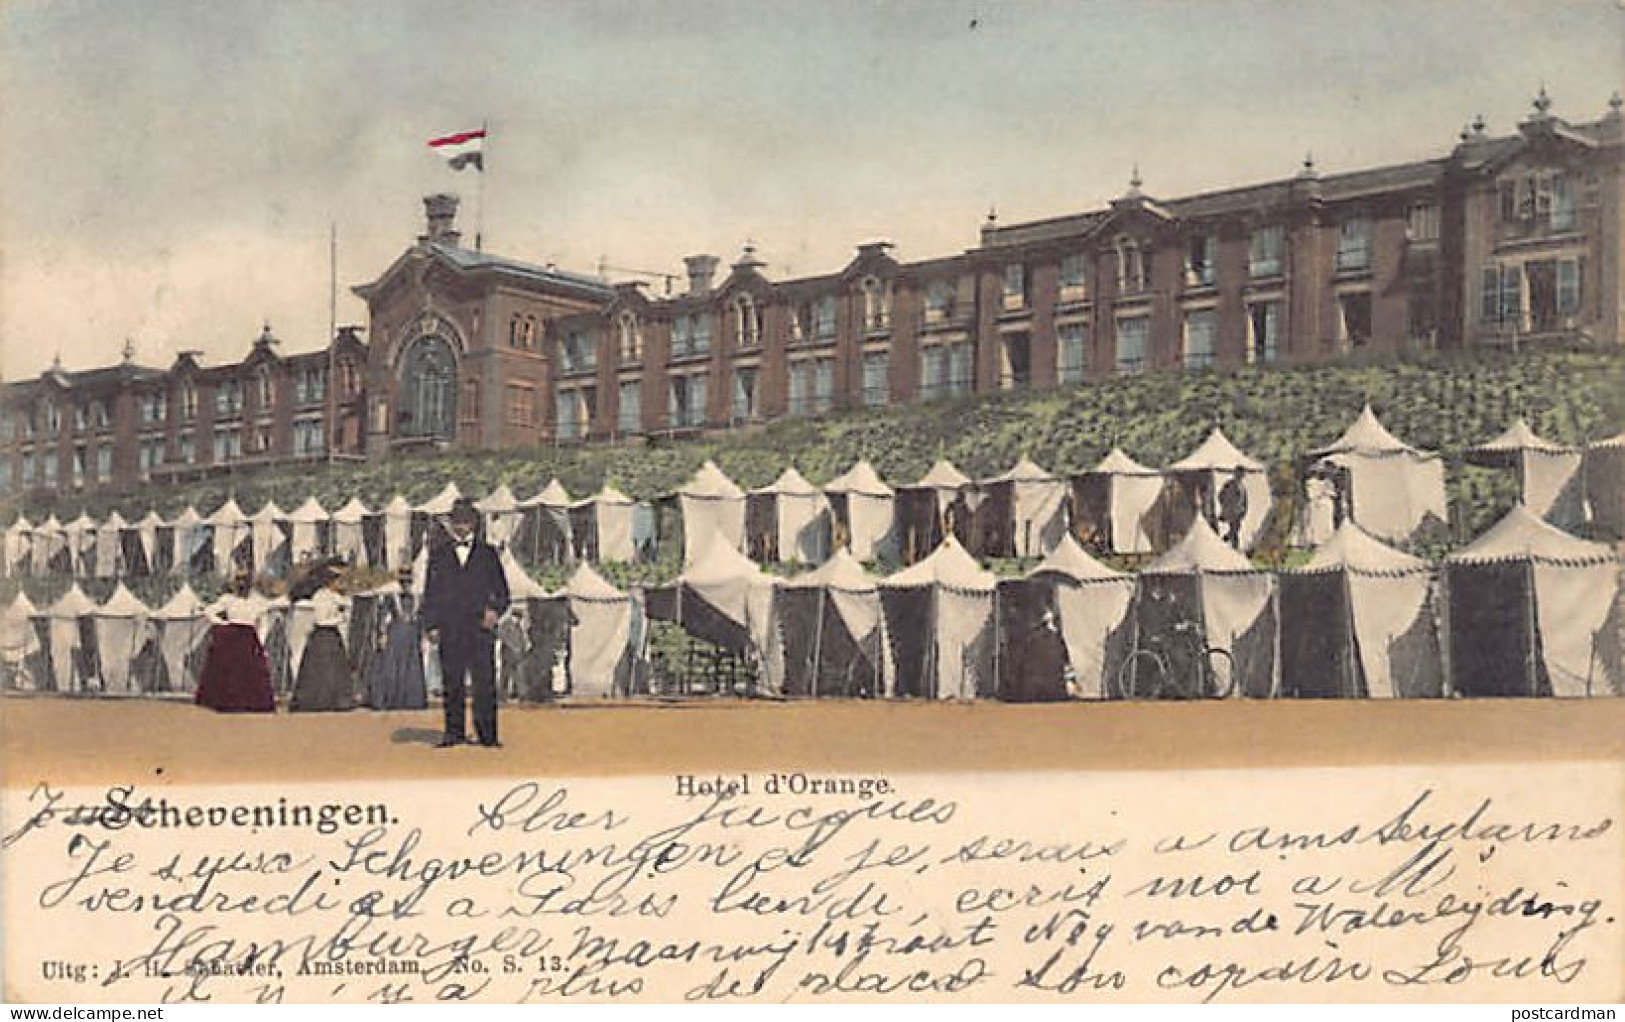 Hotel d'Orange.
Scheveningen.
Cher Jacques
Je suix Schgveningen et je, serais a amsterdams
vendredi et a Paris lundi, ecris moi a M
Hamburger Maaswijkstraat Nog van de Waterleyding.
il n'y a plus de place ton copain Louis
Uitg: J. H. Schaefer, Amsterdam. No. S. 13.
postcardman